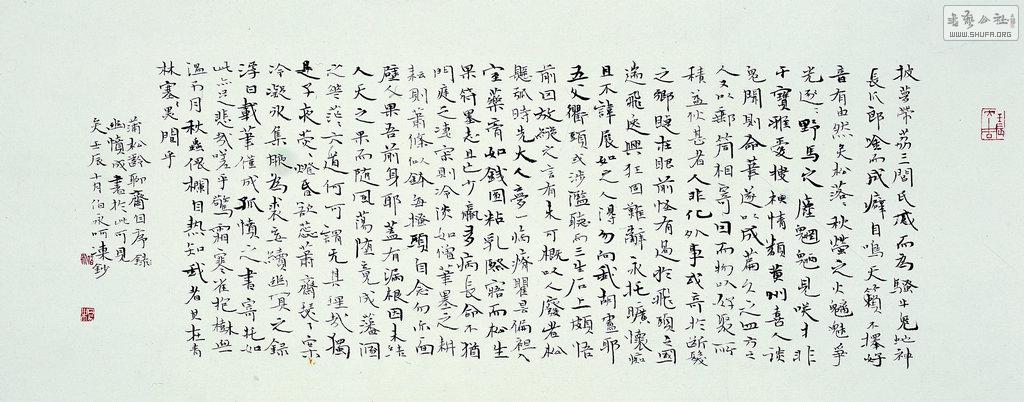 披蘿帶荔三閭氏感而為騷牛鬼蛇神
長爪郎吟而成癖自鳴天籟不擇好
音有由然矣松落落秋螢之火魑魅爭
光逐逐野馬之塵魍魎見咲才非
干寶雅愛搜神情類黃州喜人談
鬼聞則命筆遂以成篇久之四方之
人又以郵筒相寄因而物以好聚所
積益伙甚者人非化外事或奇於斷髮
之鄉睫在眼前怪有過於飛頭之國
遄飛逸興狂固難辭永托曠懷痴
且不諱展如之人得勿向我胡盧耶
五父衢頭或涉濫聽而三生石上頗悟
前因放縱之言有未可概以人廢者松
懸弧時先大人夢一病瘠瞿曇偏袒入
室藥膏如錢圓粘乳際寤而松生
果符墨志且也少羸多病長命不猶
門庭之凄寂則冷淡如僧筆墨之耕
耘則蕭條似缽每搔頭自念勿亦面
壁人果吾前身耶蓋有漏根因未結
人天之果而隨風蕩墮竟成藩溷
之花茫茫六道何可謂無其理哉獨
是子夜熒熒燈昏欲蕊蕭齋瑟瑟案
冷凝冰集腋為裘妄續幽冥之錄
浮白載筆僅成孤憤之書寄托如
此亦足悲哉嗟乎驚霜寒雀抱樹無
溫吊月秋蟲偎欄自熱知我者其在青
林塞黑間乎
蒲松齡聊齋自序錄
幽憤成書於此可見
矣壬辰十月伯永呵凍鈔
書藝公社
WWW.SHUFA.ORG